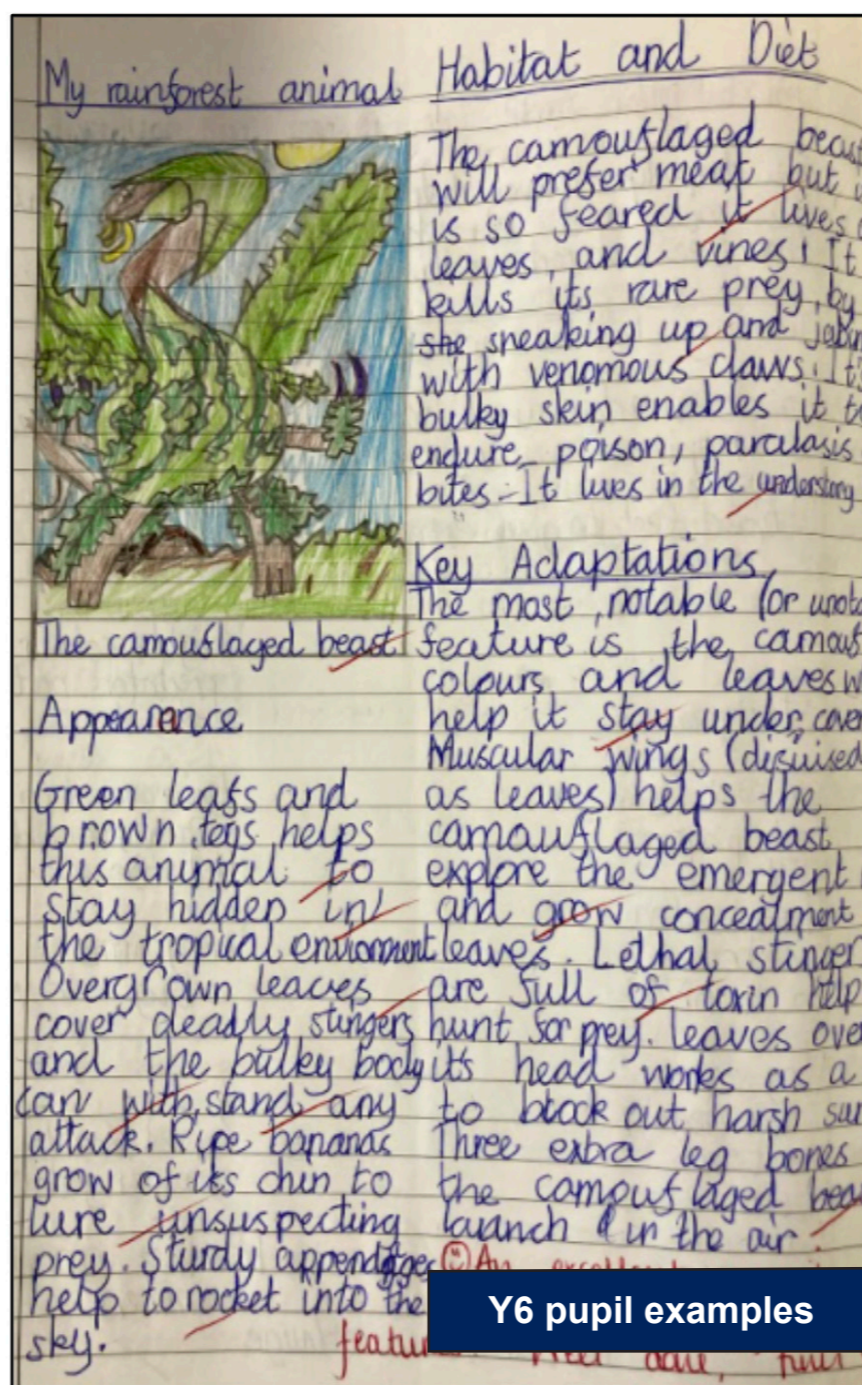 My rainforest animal
The camouflaged beast
Appearance
Green leafs and
brown legs helps
this animal to
stay hidden in
the tropical environment
Overgrown leaves
cover deadly stingers
and the bulky body
can with stand any
attack. Ripe bananas
grow of its chin to
lure unsuspecting
prey. Sturdy appendages
help to rocket into the
sky.
Habitat and Diet
The camouflaged beast
will prefer meat but
is so feared it lives
leaves, and vines. It
kills its rare prey by
she sneaking up and
with venomous claws. It's
bulky skin enables it
endure poison, paralasis
bites. It lives in the understory
Key Adaptations
The most notable (or
feature is the
colours and leaves
help it stay under
Muscular wings (disuised
as leaves) helps the
camouflaged beast
explore the emergent
and grow concealment
leaves. Lethal stinger
are full of toxin help
hunt for prey. leaves
it's head works as a
to block out harsh
Three extra leg bones
the camouflaged
launch in the air.
An excellent
Y6 pupil examples